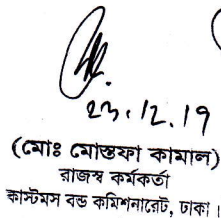 23.12.19
(মোঃ মোস্তফা কামাল)
রাজস্ব কর্মকর্তা
কাস্টমস বন্ড কমিশনারেট, ঢাকা।